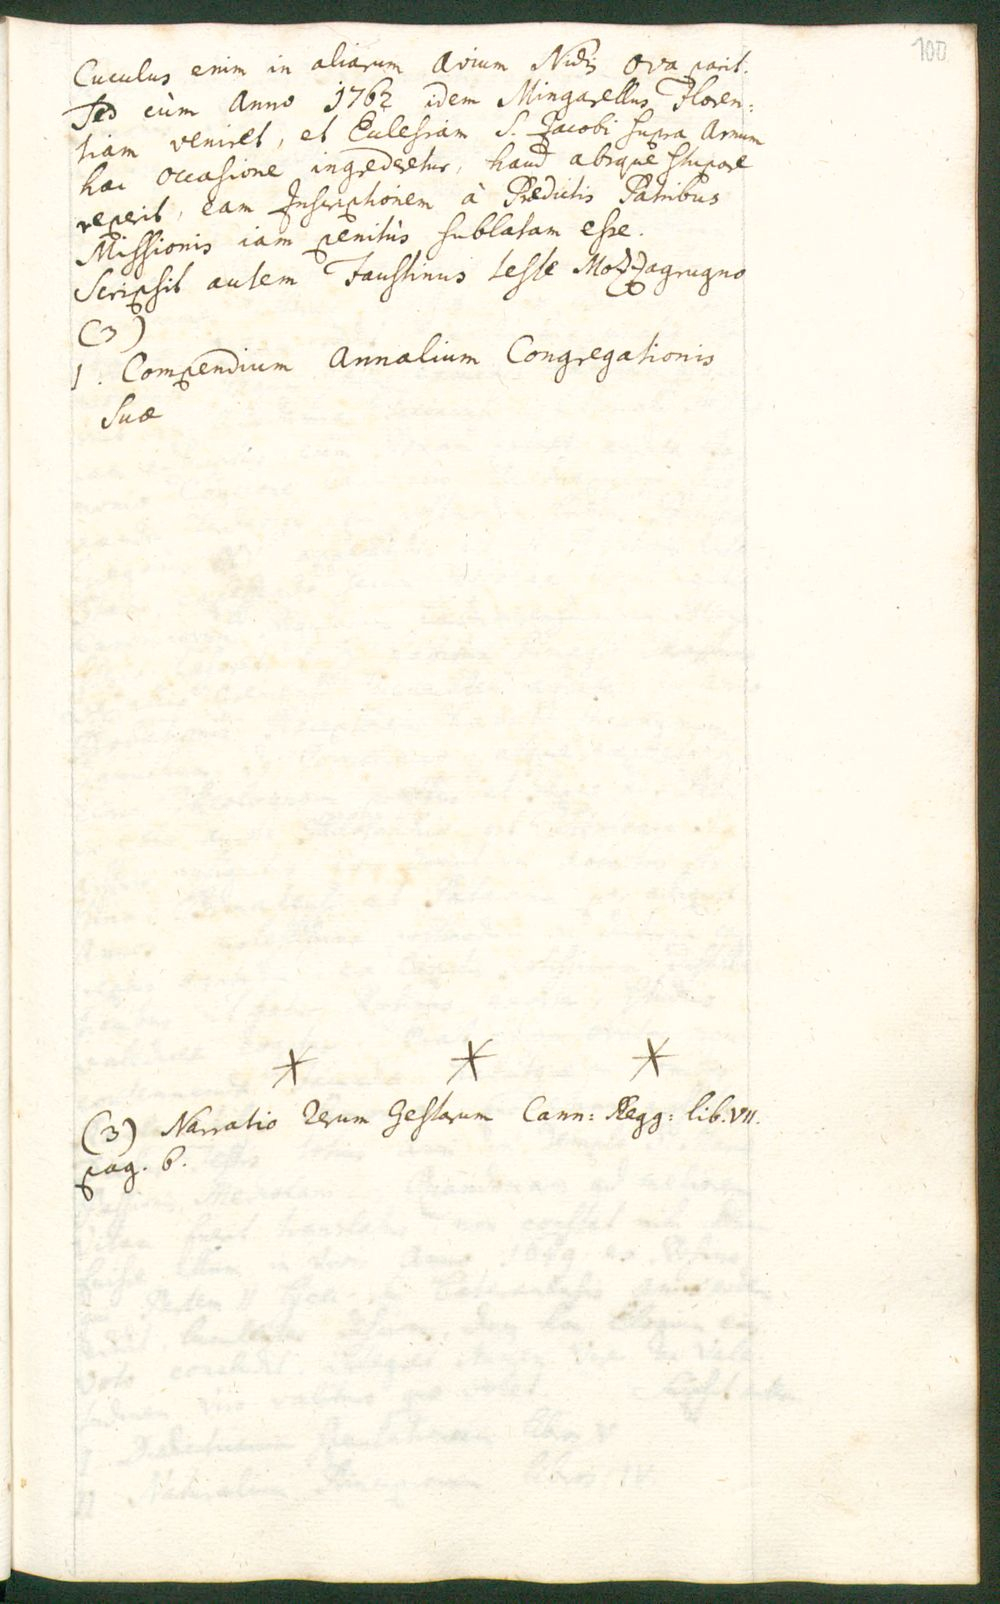 100
Cuculus enim in aliarum avium Nidis ova parit.
Sed cùm Anno 1762 idem Mingarellus Floren:
tiam veniret, et Eclesiam S. Jacobi supra Arnum
hac occasione ingrederetur, haud absque stupore
reperit, eam Inscriptionem à Prædictis Patribus
Missionis iam penitùs sublatam esse.
Scripsit autem Faustinus teste Mozzagrugno
(3)
1. Compendium Annalium Congregationis
suæ
(3) Narratio Rerum Gestarum Cann: Regg: lib. VII.
pag. 6.